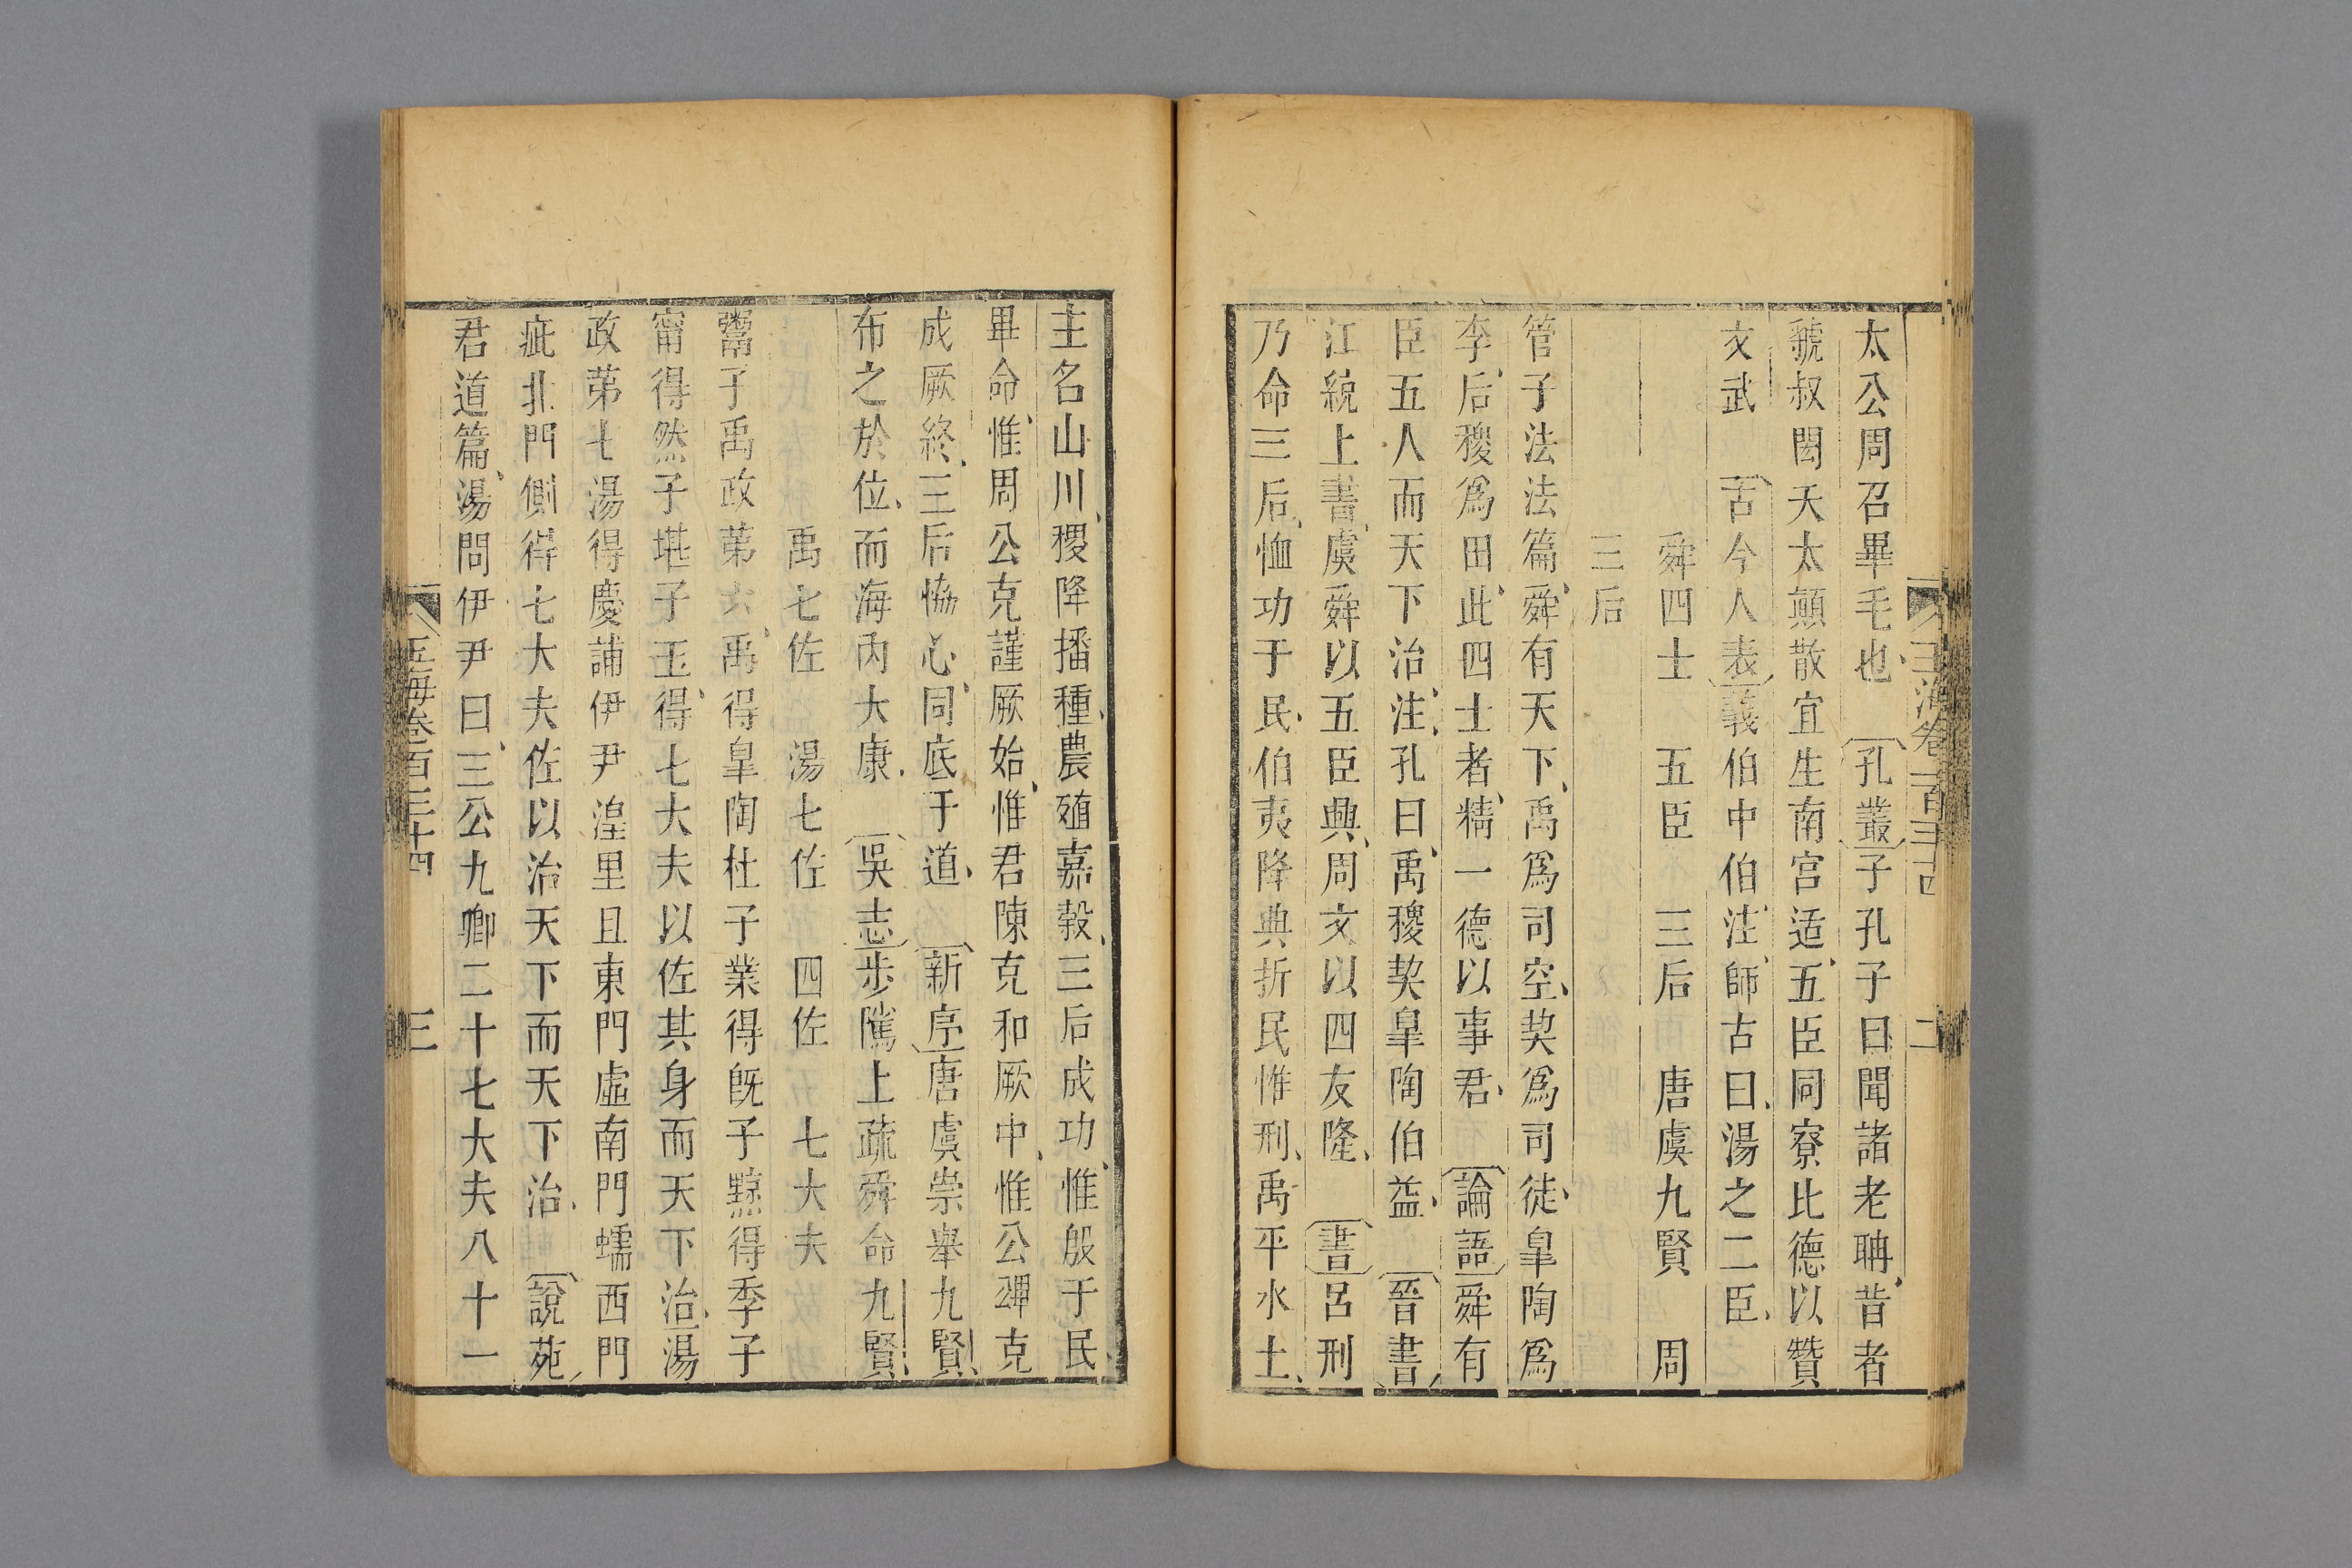 玉海卷一百三十四 二
太公周召畢毛也 孔叢子孔子曰聞諸老聃昔者
虢叔閎夭太顛散宜生南宮适五臣同寮比德以贊
文武 古今人表義伯中伯注師古曰湯之二臣
舜四士 五臣 三后 唐虞九賢 周
三后
管子法法篇舜有天下禹爲司空契爲司徒皐陶爲
李后稷爲田此四士者精一德以事君 論語舜有
臣五人而天下治注孔曰禹稷契皐陶伯益 晉書
江統上書虞舜以五臣興周文以四友隆 書呂刑
乃命三后恤功于民伯夷降典折民惟刑禹平水土
主名山川稷降播種農殖嘉穀三后成功惟殷于民
畢命惟周公克謹厥始惟君陳克和厥中惟公畢克
成厥終三后恊心同底于道 新序唐虞崇舉九賢
布之於位而海内大康 吳志步隲上疏舜命九賢
禹七佐 湯七佐 四佐 七大夫
鬻子禹政第六禹得皐陶杜子業得旣子黥得季子
甯得然子堪子玉得七大夫以佐其身而天下治湯
政第七湯得慶誧伊尹湟里且東門虛南門蝡西門
疵北門側得七大夫佐以治天下而天下治 說苑
君道篇湯問伊尹曰三公九卿二十七大夫八十一
玉海卷一百三十四 三